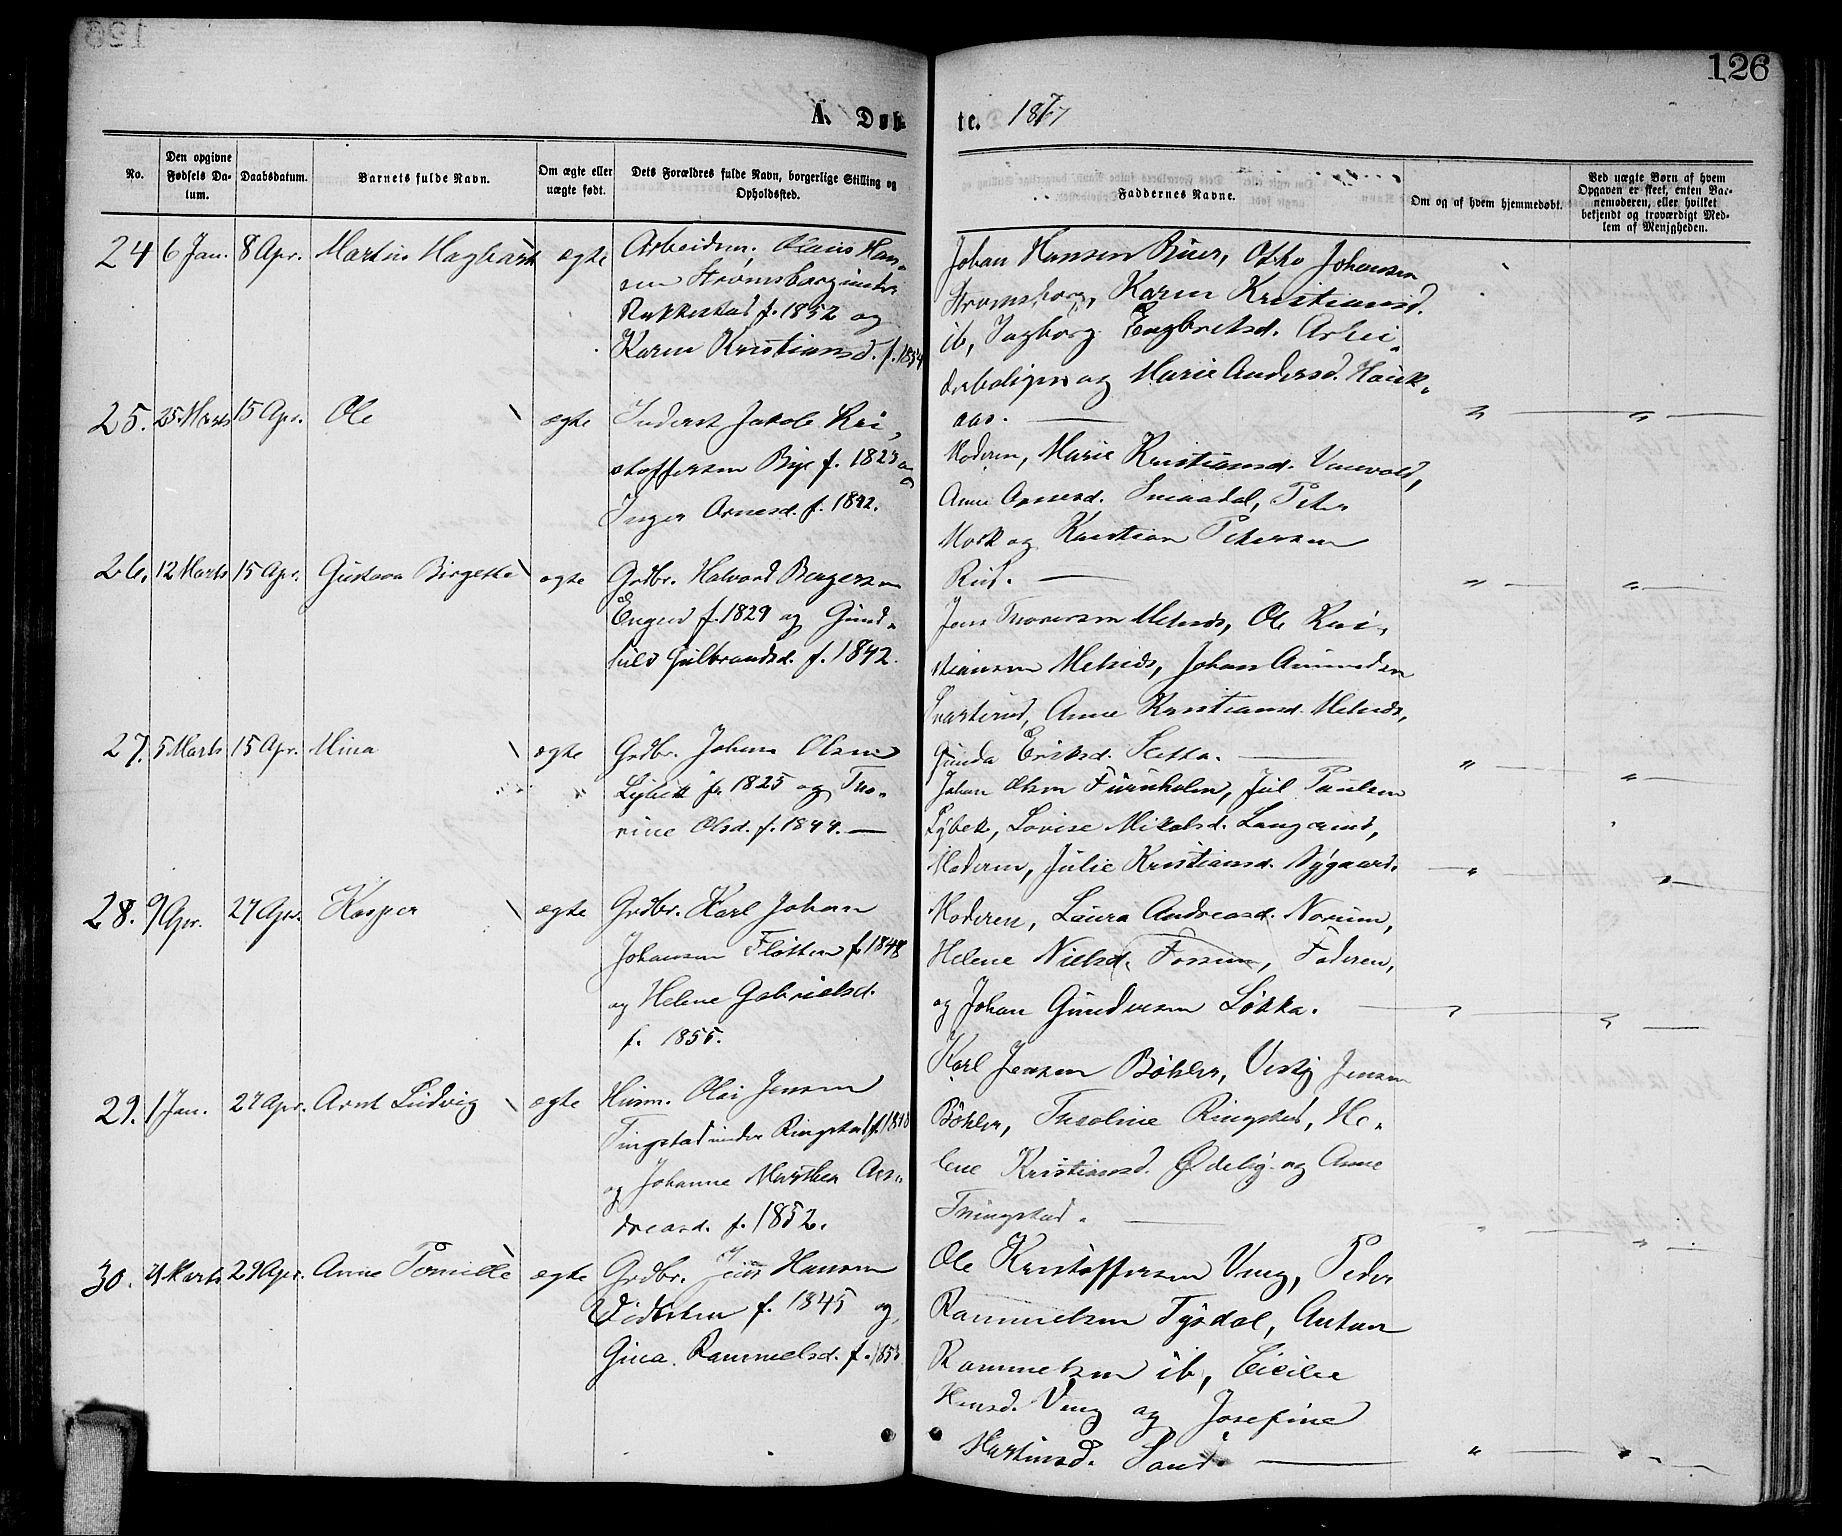 126
A. Døb-
te. 1877
No.
Den opgivne Fødsels Da-tum.
Daabsdatum.
Barnets fulde Navn.
Om ægte eller uægte født.
Dets Forældres fulde Navn, borgerlige Stilling og Opholdssted.
Faddernes Navne.
Om og af hvem hjemmedøbt.
Ved uægte Børn af hvem Opgaven er skeet, enten Bar-nemoderen, eller hvilket bekjendt og troværdigt Med-lem af Menigheden.
24 6 Jan. 8 Apr. Martin Hagbart ægte
Arbeidsm. Olaus Han-
sen Strømsborg under
Rakkestad f. 1852 og
Karen Kristiansd. f. 1854
Johan Hansen Buer, Otto Johansen
Strømsborg, Karen Kristiansd.
ib, Ingborg Engbretsd. Arbei-
derboligen og Marie Andersd. Hauk-
aas. — " — " —
25. 25 Marts 15 Apr. Ole ægte
Inderst Jakob Kri-
stoffersen Bye f. 1823 og
Inger Arnesd. f. 1842.
Moderen, Marie Kristiansd.
Anne Arnesd. Smaadal, Peter
Mork og Kristian Petersen
Rud. — " — " —
26. 12 Marts 15 Apr. Gustava Birgette ægte
Grdbr. Halvord Bergersen
Engen f. 1829 og Gund-
hild Gulbrandsd. f. 1842.
Jens Thoresen Melnds, Ole Kri-
stiansen Melnds, Johan Amundsen
Svarterud, Anne Kristiansd. Melnds,
Gunda Eriksd. Sletta. — " — " —
27. 5 Marts 15 Apr. Mina ægte
Grdbr. Johan Olsen
Lybek f. 1825 og Tho-
rine Olsd. f. 1844. —
Johan Olsen Furuholm, Jul Paulsen
Lybek, Lovise Mikelsd. Langerud,
Moderen, Julie Kristiansd. Nygaard. — " — " —
28. 9 Apr. 27 Apr. Kasper ægte
Grdbr. Karl Johan
Johansen Fløtten f. 1848
og Helene Gabrielsd.
f. 1855.
Moderen, Laura Andreasd. Norum,
Helene Nielsd. Fossum, Faderen,
og Johan Gundersen Løkka. — " — " —
29. 1 Jan. 27 Apr. Arnt Ludvig ægte
Husm. Olai Jensen
Tingstad under Ringstad f. 1848
og Johanne Marthea An-
dreasd. f. 1852.
Karl Jensen Bøhler, Jensen
Bøhler, Theoline Ringstad, He-
lene Kristiansd. Ødelig og Anne
Thingstad. — " — " —
30. 29 Apr. Anne Pernille ægte
Grdbr. Jens Hansen
f. 1845 og
Gina Rammelsd. f. 1853
Ole Kristoffersen Veng, Peder
Rammelsen Tysdal, Anton
Rammelsen ib, Cicilie
Hansd. Veng og Josefine
Martinsd. Sand. — " — " —